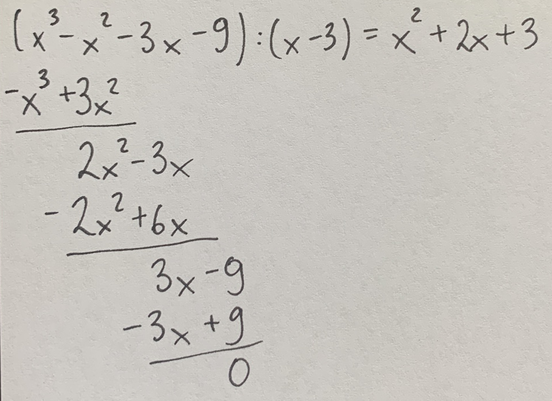 (x³ - x² - 3x - 9) : (x - 3) = x² + 2x + 3
-x³ + 3x²
2x² - 3x
- 2x² + 6x
3x - 9
-3x + 9
0